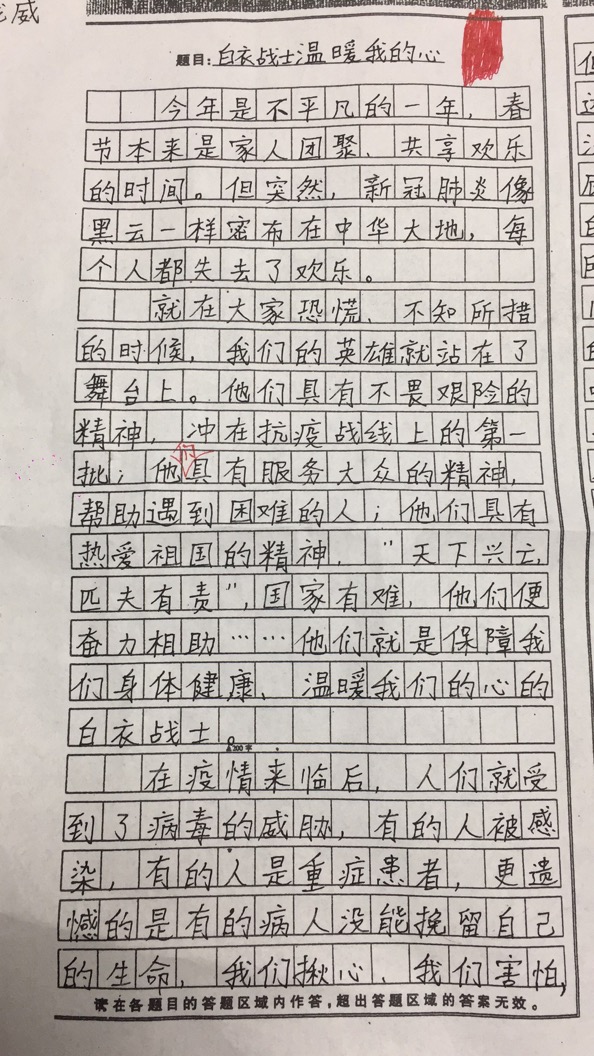 威
题目：白衣战士温暖我的心
今年是不平凡的一年，春
节本来是家人团聚、共享欢乐
的时间。但突然，新冠肺炎像
黑云一样密布在中华大地，每
个人都失去了欢乐。
就在大家恐慌、不知所措
的时候，我们的英雄就站在了
舞台上。他们具有不畏艰险的
精神，冲在抗疫战线上的第一
批；他们具有服务大众的精神，
帮助遇到困难的人；他们具有
热爱祖国的精神，"天下兴亡，
匹夫有责"，国家有难，他们便
奋力相助……他们就是保障我
们身体健康、温暖我们的心的
白衣战士。
200字
在疫情来临后，人们就受
到了病毒的威胁，有的人被感
染，有的人是重症患者，更遗
憾的是有的病人没能挽留自己
的生命，我们揪心、我们害怕，
读在各题目的答题区域内作答，超出答题区域的答案无效。